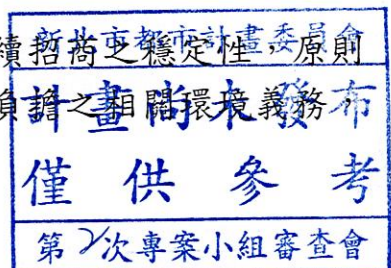 續招商之穩定性，原則
負擔之相關環境義務，
新北市都市計畫委員會
計畫尚未發布
僅供參考
第2次專案小組審查會